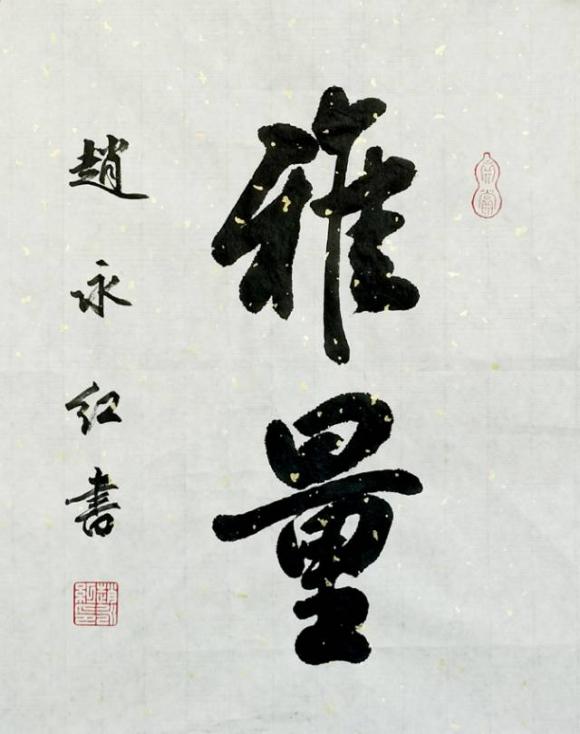 雅量
趙永红書